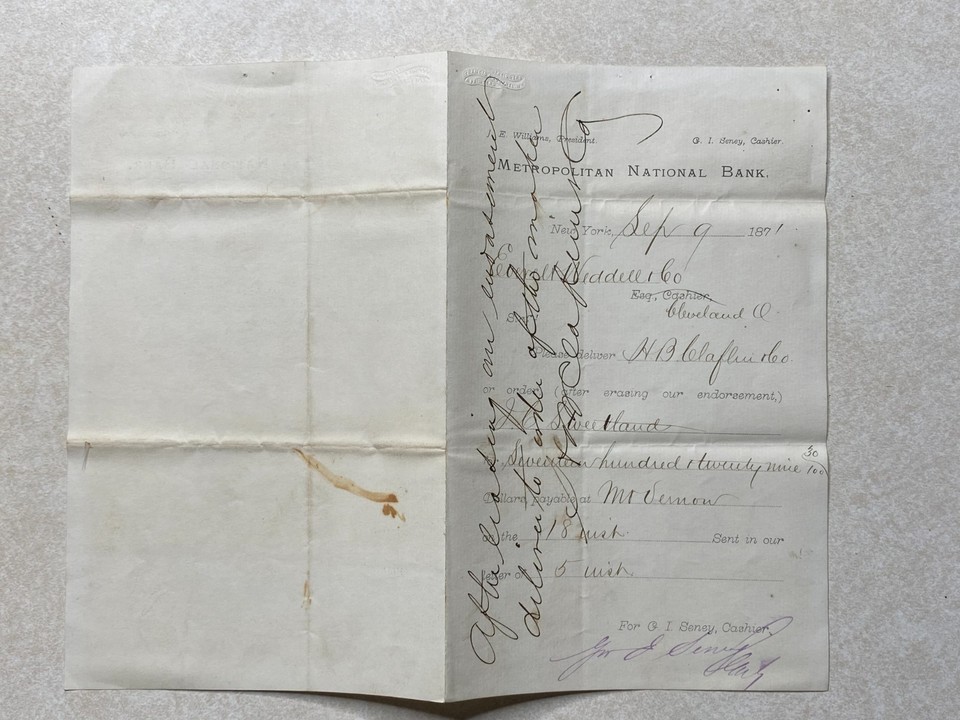 E. Williams, President. G. I. Seney, Cashier.
METROPOLITAN NATIONAL BANK.
New York, Sep 9 1871
Weddell & Co
Esq., Cashier,
Cleveland O.
Please deliver H B Claflin & Co.
or order (after erasing our endorsement,)
Sweetland
Seventeen hundred & twenty nine 30/100
Dollars, payable at Mt Vernon
the 18 inst. Sent in our
letter of 5 inst.
For G. I. Seney, Cashier,
After erasing our endorsement
deliver to order of the maker
H B Claflin & Co